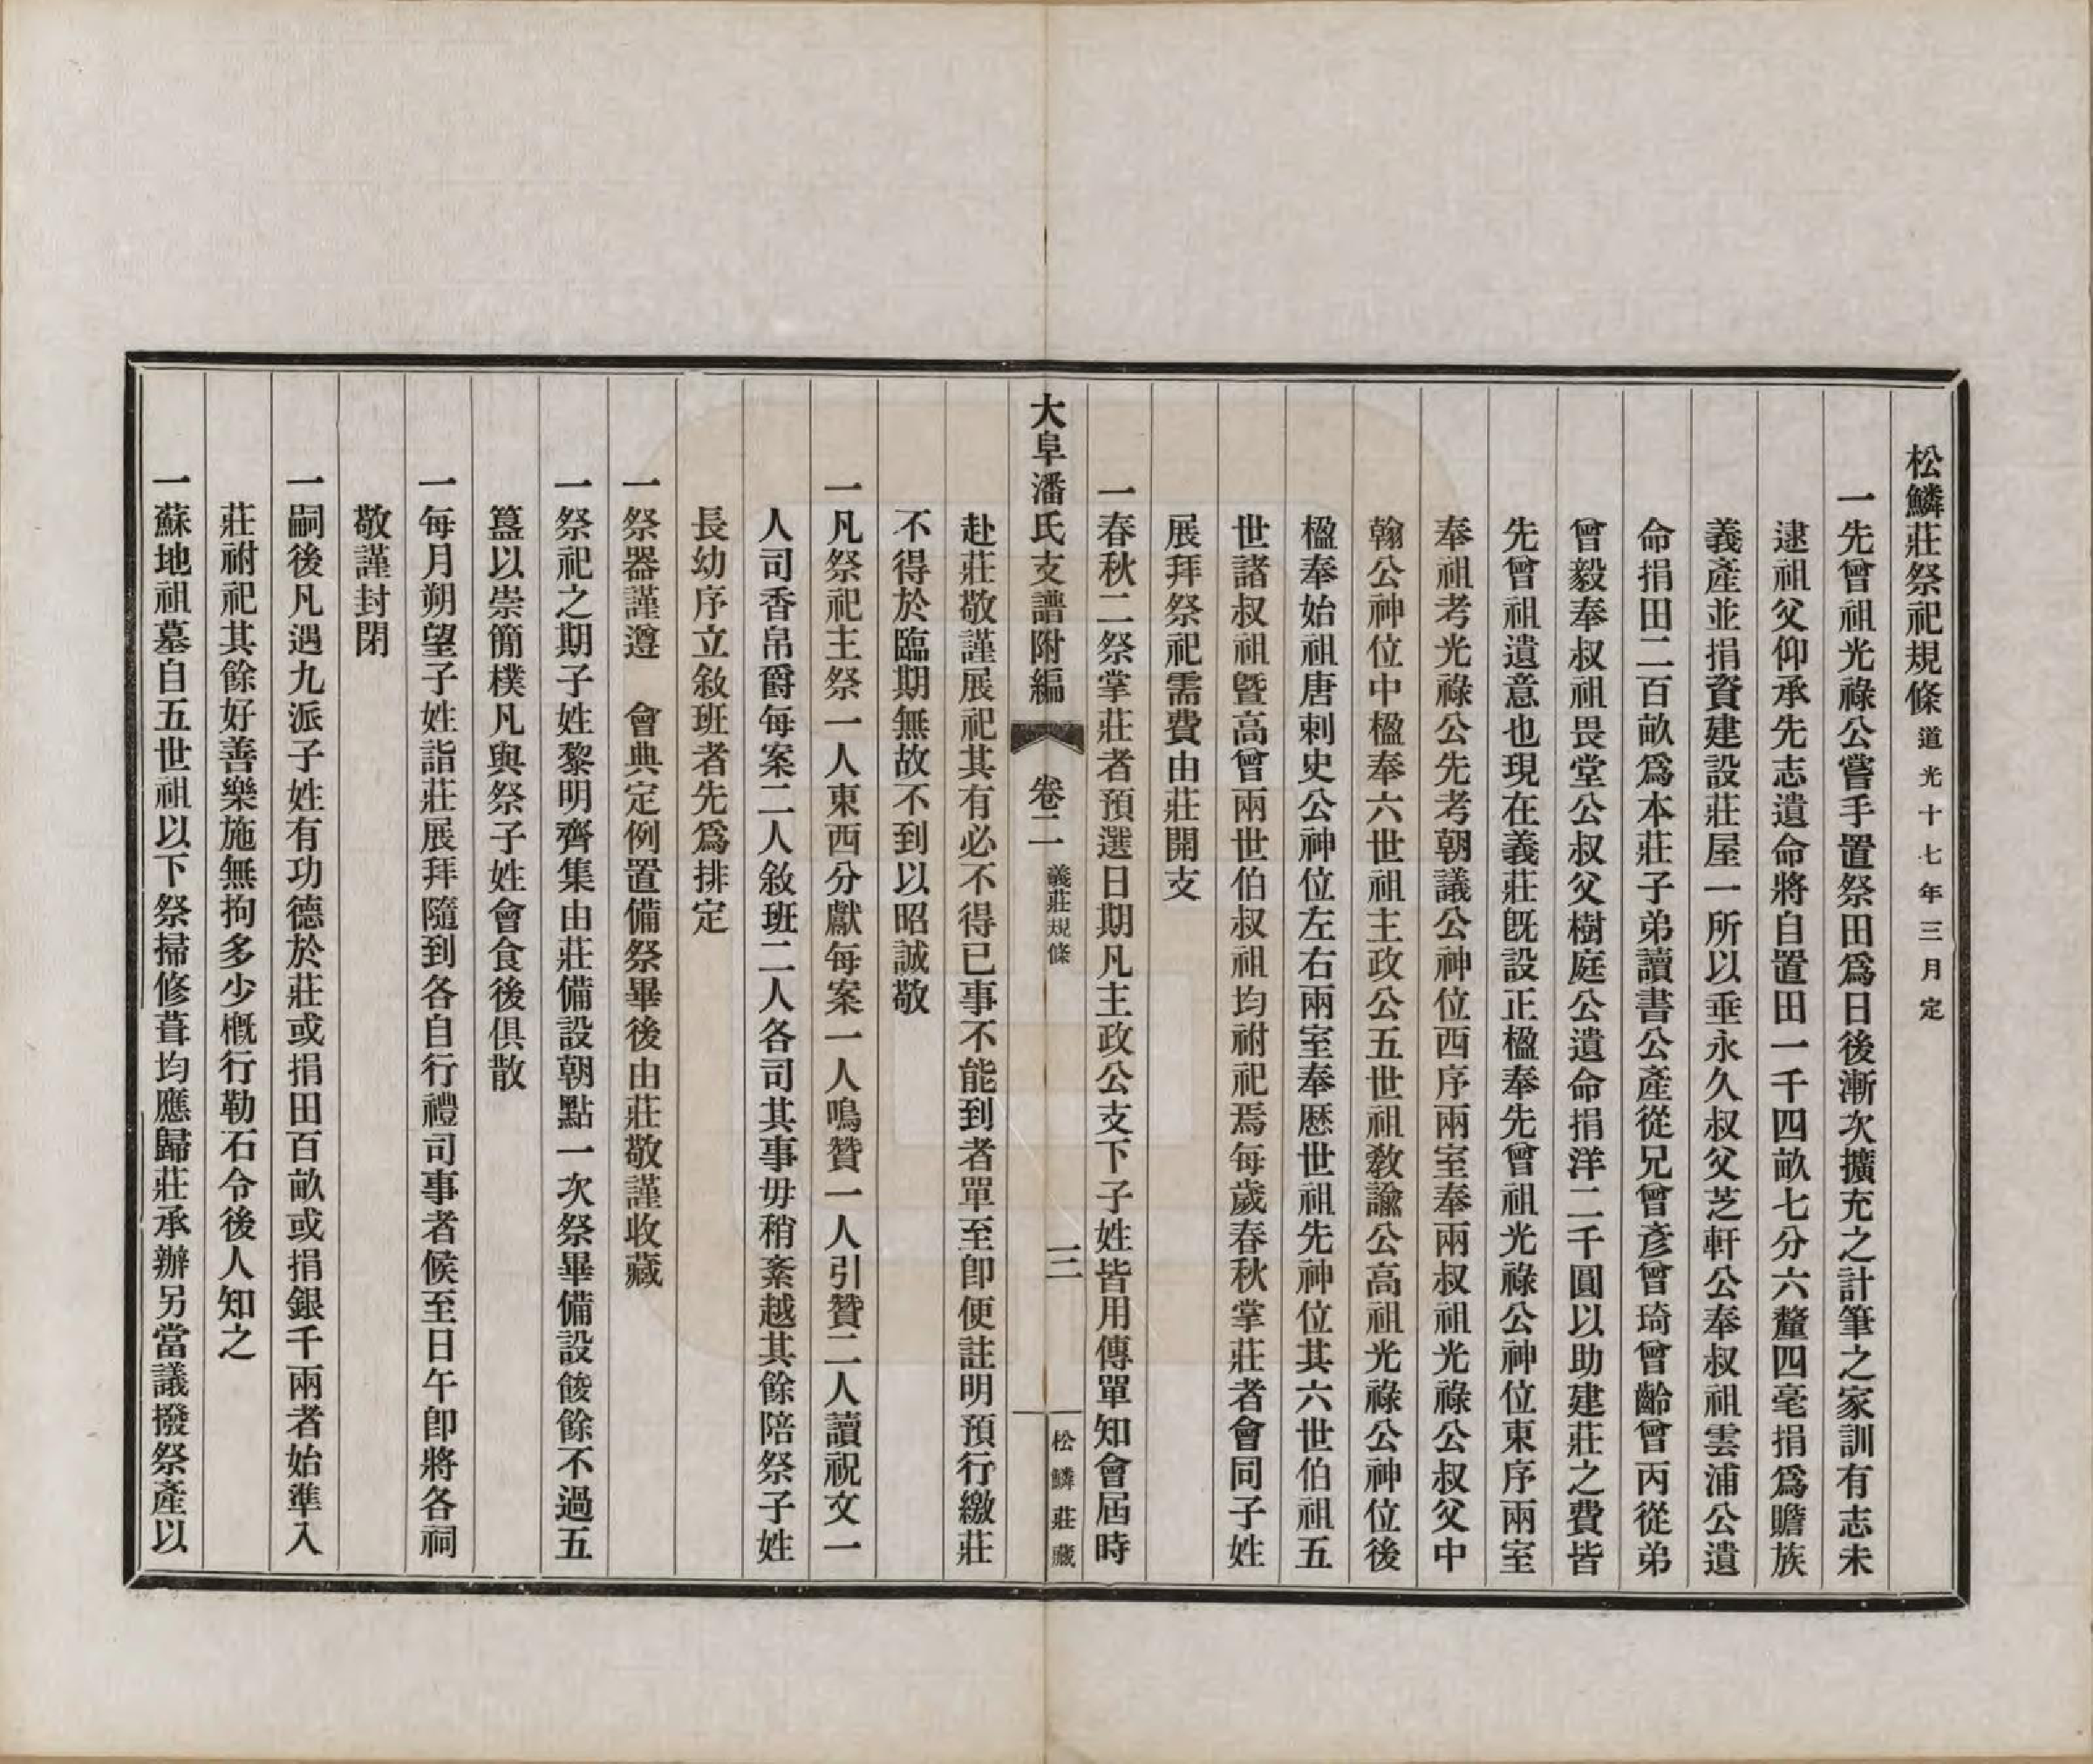 松鱗莊祭祀規條道光十七年三月定
一先曾祖光祿公嘗手置祭田爲日後漸次擴充之計筆之家訓有志未
逮祖父仰承先志遺命將自置田一千四畝七分六釐四毫捐爲贍族
義產並捐資建設莊屋一所以垂永久叔父芝軒公奉叔祖雲浦公遺
命捐田二百畝爲本莊子弟讀書公產從兄曾彥曾琦曾齡曾丙從弟
曾毅奉叔祖畏堂公叔父樹庭公遺命捐洋二千圓以助建莊之費皆
先曾祖遺意也現在義莊旣設正楹奉先曾祖光祿公神位東序兩室
奉祖考光祿公先考朝議公神位西序兩室奉兩叔祖光祿公叔父中
翰公神位中楹奉六世祖主政公五世祖敎諭公高祖光祿公神位後
楹奉始祖唐刺史公神位左右兩室奉歷世祖先神位其六世伯祖五
世諸叔祖曁高曾兩世伯叔祖均祔祀焉每歲春秋掌莊者會同子姓
展拜祭祀需費由莊開支
一春秋二祭掌莊者預選日期凡主政公支下子姓皆用傳單知會屆時
大阜潘氏支譜附編 卷二 義莊規條 三 松鱗莊藏
赴莊敬謹展祀其有必不得已事不能到者單至卽便註明預行繳莊
不得於臨期無故不到以昭誠敬
一凡祭祀主祭一人東西分獻每案一人鳴贊一人引贊二人讀祝文一
人司香帛爵每案二人敘班二人各司其事毋稍紊越其餘陪祭子姓
長幼序立敘班者先爲排定
一祭器謹遵 會典定例置備祭畢後由莊敬謹收藏
一祭祀之期子姓黎明齊集由莊備設朝點一次祭畢備設餕餘不過五
簋以崇簡樸凡與祭子姓會食後俱散
一每月朔望子姓詣莊展拜隨到各自行禮司事者候至日午卽將各祠
敬謹封閉
一嗣後凡遇九派子姓有功德於莊或捐田百畝或捐銀千兩者始準入
莊祔祀其餘好善樂施無拘多少槪行勒石令後人知之
一蘇地祖墓自五世祖以下祭掃修葺均應歸莊承辦另當議撥祭產以